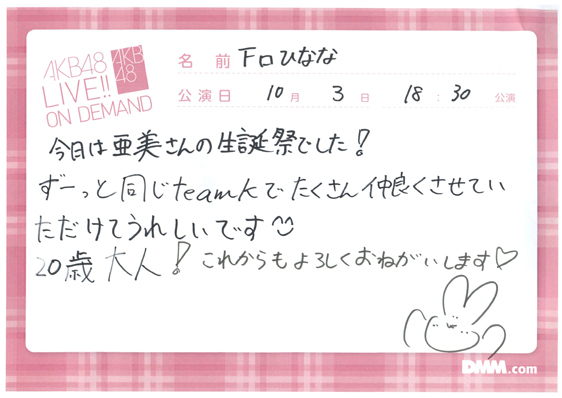 AKB48
LIVE!!
ON DEMAND
AKB
48
名前 下口ひなな
公演日 10月 3日 18:30 公演
今日は亜美さんの生誕祭でした!
ずーっと同じteamKでたくさん仲良くさせてい
ただけてうれしいです
20歳大人! これからもよろしくおねがいします♡
DMM.com